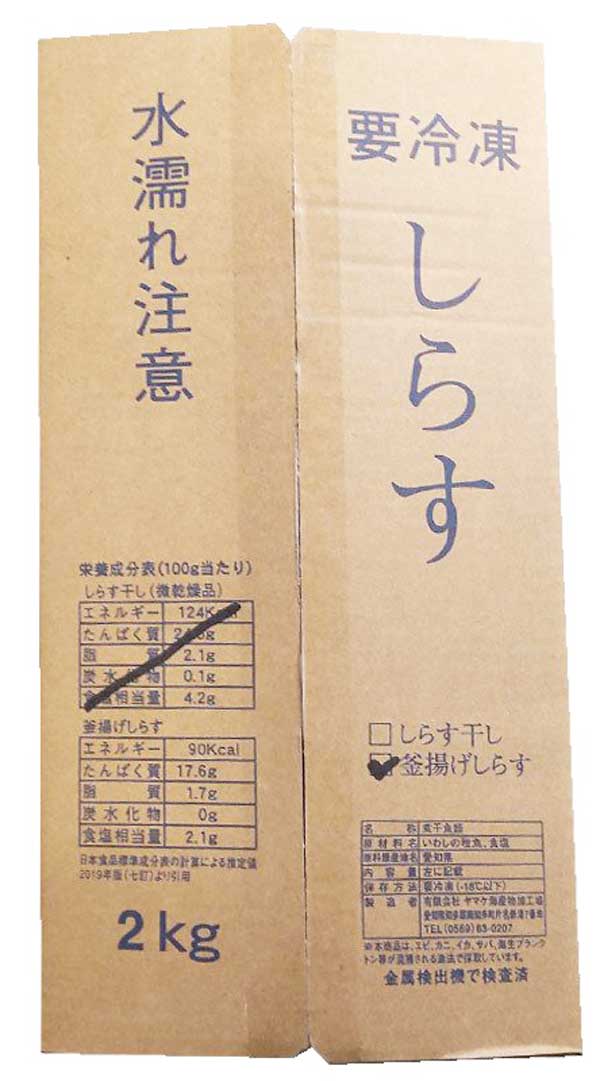 水濡れ注意
栄養成分表(100g当たり)
しらす干し(微乾燥品)
エネルギー 124Kcal
たんぱく質
脂 質 2.1g
炭水化物 0.1g
食塩相当量 4.2g
釜揚げしらす
エネルギー 90Kcal
たんぱく質 17.6g
脂 質 1.7g
炭水化物 0g
食塩相当量 2.1g
日本食品標準成分表の計算による推定値
2019年版(七訂)より引用
2kg
要冷凍
しらす
□しらす干し
☑釜揚げしらす
名 称 煮干魚類
原材料名 いわしの稚魚、食塩
原料原産地名 愛知県
内容量 左に記載
保存方法 要冷凍(-18℃以下)
製造者 有限会社 ヤマケ海産物加工場
愛知県知多郡南知多町片名
TEL(0569)63-0207
※本商品は、エビ、カニ、イカ、サバ、海生プランク
トン等が混獲される漁法で採取しています。
金属検出機で検査済